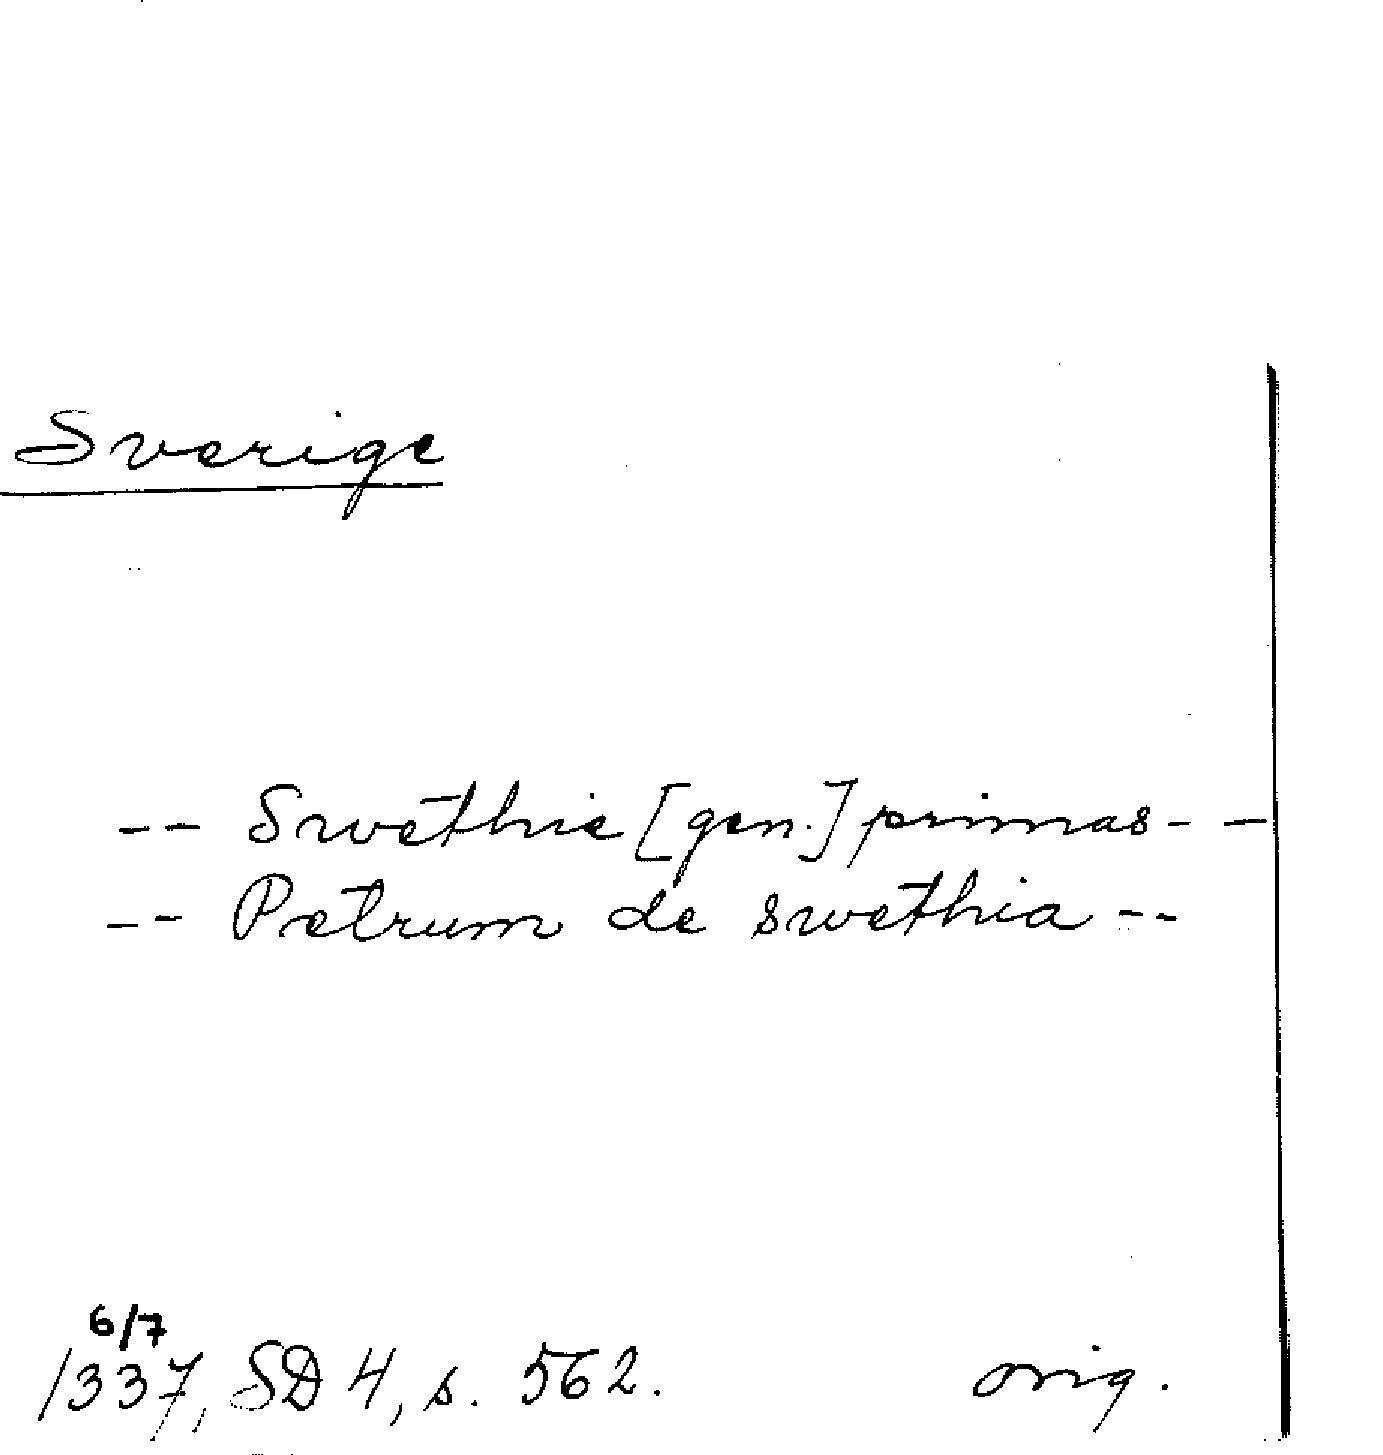 Sverige
-- Swethie [gen.] primas --
-- Petrum de swethia --
6/7
1337, SD 4, s. 562. orig.